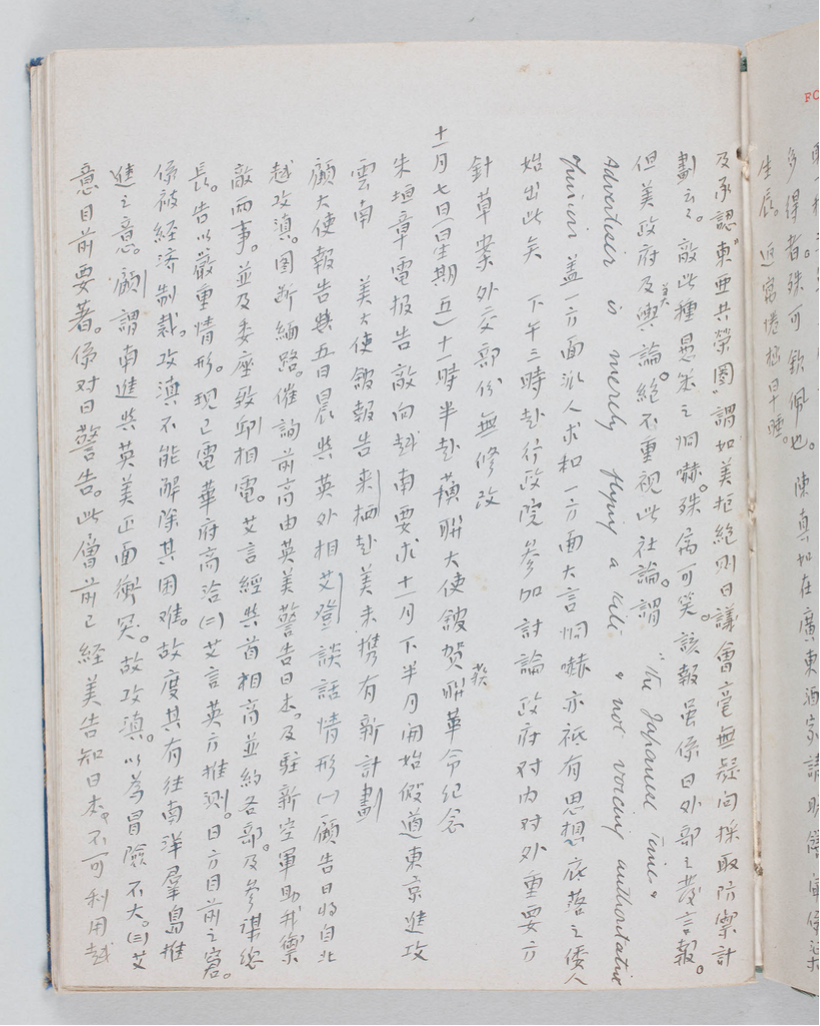 FO
生辰。返寓倦極早睡。
及承認"東亜共榮圈"謂如美拒絕則日議會毫無疑问採取防禦計
劃云云。敵此種愚笨之恫嚇。殊属可笑。該報虽係日外部之發言報。
但美政府及美輿論。絕不重視此社論。謂 "The Japanese Times &
Advertiser is merely flying a kite & not voicing authoritative
盖一方面派人求和一方面大言恫嚇亦祗有思想底落之倭人
始出此矣 下午三時赴行政院參加討論政府对内对外重要方
針草案外交部份無修改
十一月七日(星期五)十一時半赴蘇聯大使舘贺聯革命纪念
朱垣章電报告敵向越南要求十一月下半月開始假道東京進攻
雲南 美大使舘報告来栖赴美未携有新計劃
顧大使報告與五日晨與英外相艾登談話情形(一)顧告日將自北
越攻滇。图断緬路。催詢前商由英美警告日本。及駐新空軍助我禦
敵兩事。並及委座致邱相電。艾言經與首相商並約各部。及參谋總
長。告以嚴重情形。現已電華府商洽(二)艾言英方推测。日方目前之窘。
係被經济制裁。攻滇不能解除其困难。故度其有往南洋羣島推
進之意。顧謂南進與英美正面衝突。故攻滇。以為冒險不大。(三)艾
意目前要著。係对日警告。此層前已經美告知日本。不可利用越